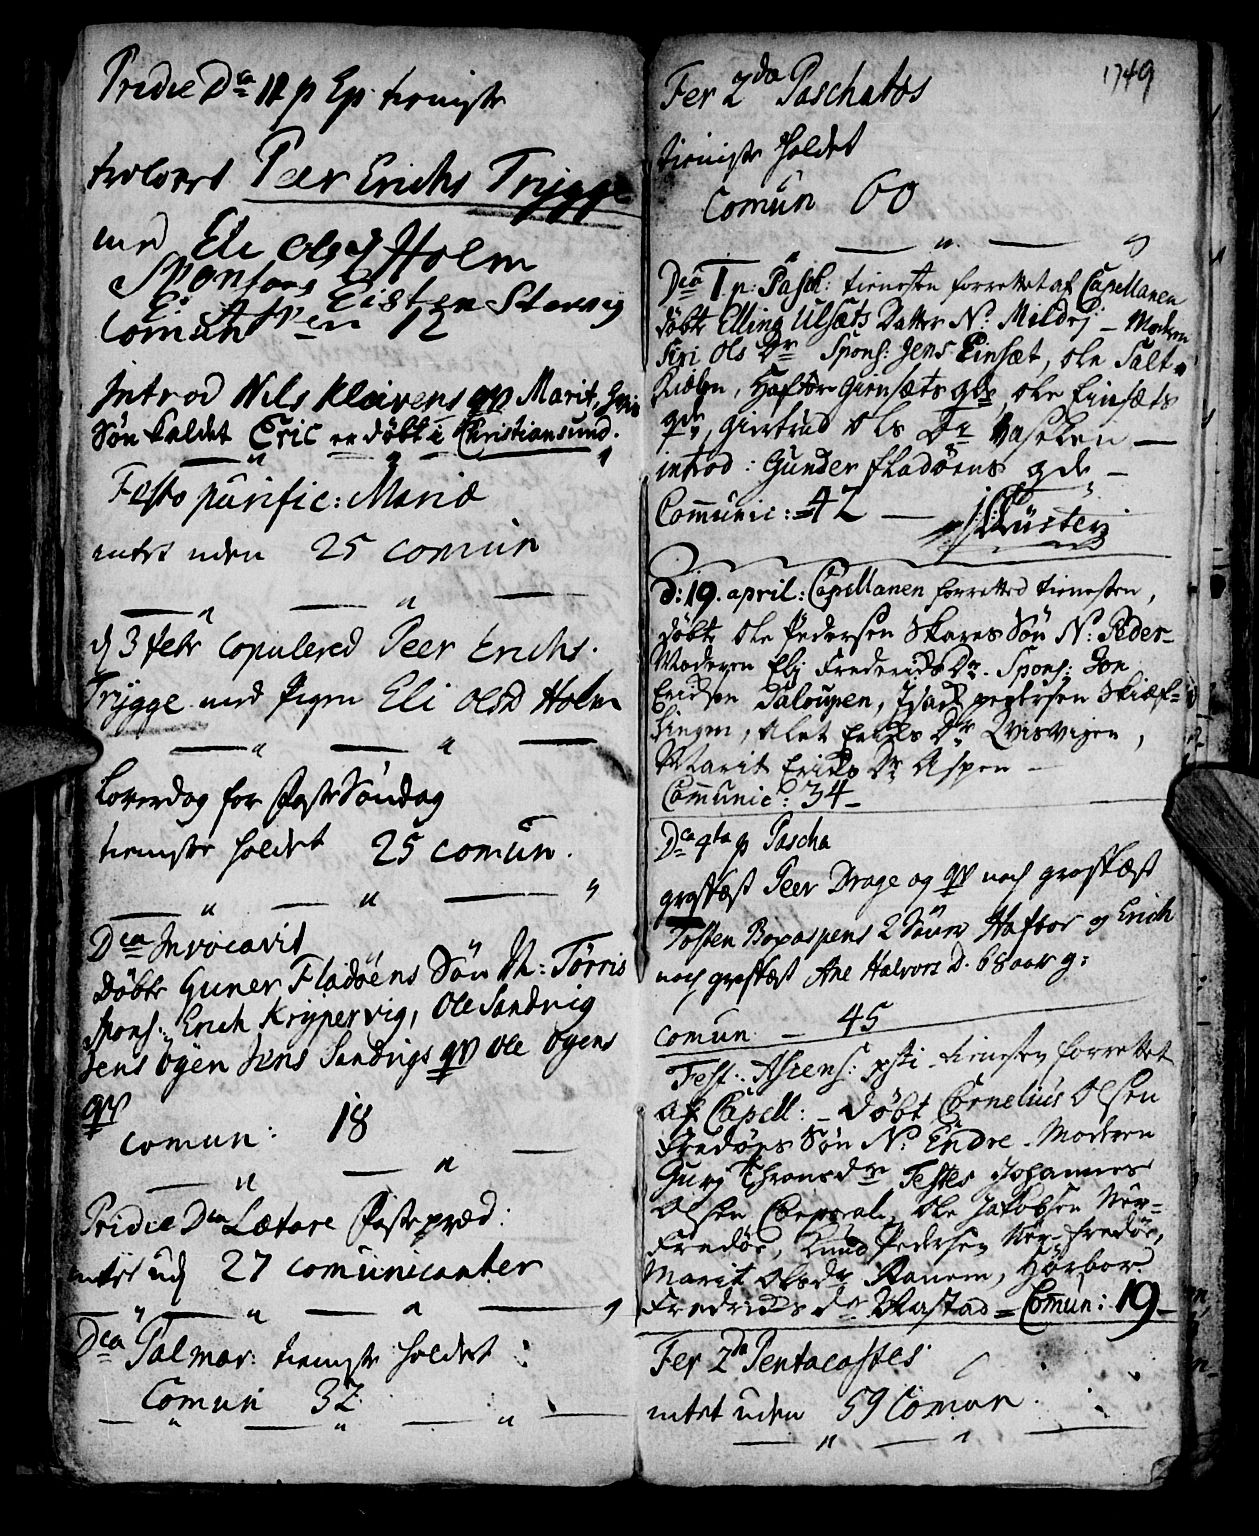 Pridie Dca 11 p Ep. tieniste
trolovet Peer Erichs Trygge
med Eli Olsd Holm
Sponsores Eisten Stensvig
Comun 12
Introd Nils Kleivens qv Marit,
Søn kaldet Eric er døbt i Christiansund.
Festo purific: Mariæ
intet uden 25 comun
d 3 febr copulered Peer Erichs.
Trygge med Pigen Eli Olsd Holm
Løverdag for FasteSøndag
tieniste holdet 25 comun.
Dca Invocavit
Døbte Guner Fladøens Søn N: Tørris
Spons: Erich Krypervig, Ole Sandvig
Jens Øyen Jens Sandvigs qv Ole Øyens
qv
comun: 18
Pridie Dca Lætare Fastepræd:
intet ud 27 comunicanter
Dca Palmar: tieniste holdet
Comun 32
1749
Fer 2da Paschatos
tieniste holdet
Comun 60
Dca 1 p: Pasch: tienesten forrettet af Capellanen
døbt Elling Ulsæts Datter N: Mildri - Moderen
Siri Ols Dr Spons: Jens Einsæt, Ole Salt-
Haftor Giensæts qde, Ole Einsæts
qv, Giertrud Ols Dr Vaselen
introd: Gunder fladøens qde -
Communic: = 42
D: 19. april: Capellanen forretted tienesten,
døbte Ole Pedersen Skares Søn N: Peder-
Moderen Elj Frederichs Dr. Spons: Jon
Ericksen Daloupen, Isach pedersen Skief-
lingen, Olet Ericks Dr Qvisvigen,
Marit Ericks Dr Aspen -
Communic: 34 -
Dca 4ta p Pascha
græsfæst Peer Drage og qv noch græsfæst
Tosten Boxaspens 2 Sønner Haftor og Erich
noch græsfæst Ane Halvors D. 68 aar g:
comun - 45
Fest: Ascens: xsti tienesten forrettet
af Capell: - Døbt Cornelius Olsen
Fredøes Søn N: Endre - Moderen
Gury Thronsdr Testes Johannes
Olsen Corporal, Ole Jacobsen Nør-
Fredøe, Knud Pedersen Nør-fredøe,
Marit Olsdr Ranem,
Fredrichs dr = Comun: 19 -
Fer 2da Pentacostes
intet uden 59 Comun